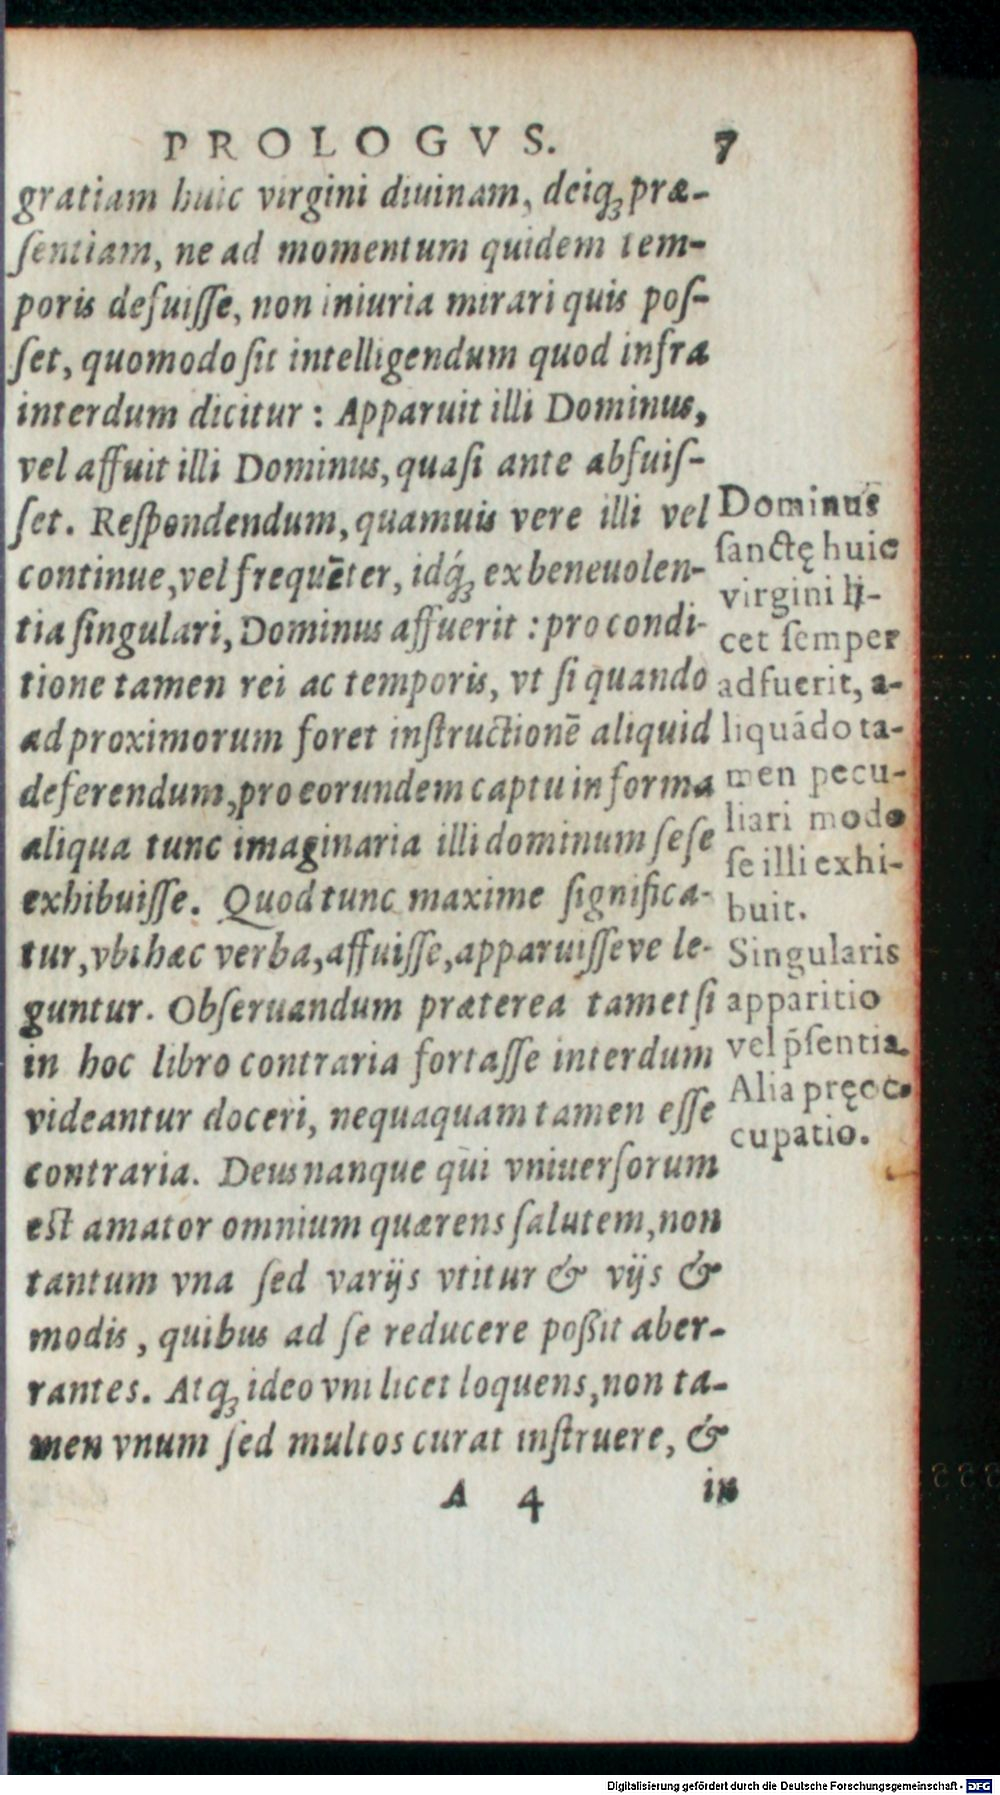 PROLOGVS. 7
gratiam huic virgini diuinam, deiq́ꝫ præ-
ſentiam, ne ad momentum quidem tem-
poris defuiſſe, non iniuria mirari quis poſ-
ſet, quomodo ſit intelligendum quod infra
interdum dicitur : Apparuit illi Dominus,
vel affuit illi Dominus, quaſi ante abfuiſ-
ſet. Reſpondendum, quamuis vere illi vel
continue, vel frequēter, idq́ꝫ ex beneuolen-
tia ſingulari, Dominus affuerit : pro condi-
tione tamen rei ac temporis, vt ſi quando
ad proximorum foret inſtructionē aliquid
deferendum, pro eorundem captu in forma
aliqua tunc imaginaria illi dominum ſeſe
exhibuiſſe. Quod tunc maxime ſignifica-
tur, vbi hæc verba, affuiſſe, apparuiſſeve le-
guntur. Obſeruandum præterea tametſi
in hoc libro contraria fortaſſe interdum
videantur doceri, nequaquam tamen eſſe
contraria. Deus nanque qui vniuerſorum
eſt amator omnium quærens ſalutem, non
tantum vna ſed varijs vtitur & vijs &
modis, quibus ad ſe reducere poßit aber-
rantes. Atqꝫ ideo vni licet loquens, non ta-
men vnum ſed multos curat inſtruere, &
A 4 in
Dominus
ſanctę huic
virgini li-
cet ſemper
adfuerit, a-
liquádo ta-
men pecu-
liari modo
ſe illi exhi-
buit.
Singularis
apparitio
vel p̄ſentia.
Alia pręoc-
cupatio.
Digitalisierung gefördert durch die Deutsche Forschungsgemeinschaft - DFG